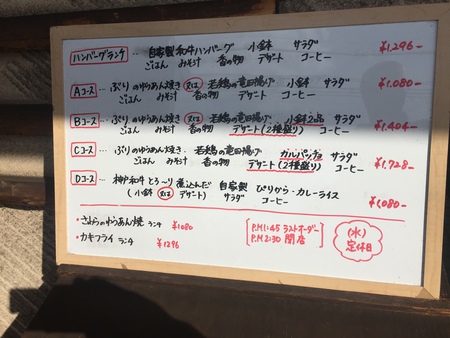 ハンバーグランチ … 自家製 和牛ハンバーグ 小鉢 サラダ ¥1,296-
ごはん みそ汁 香の物 デザート コーヒー
Aコース … ぶりのゆうあん焼き 又は 若鶏の竜田揚げ 小鉢 サラダ ¥1,080-
ごはん みそ汁 香の物 デザート コーヒー
Bコース … ぶりのゆうあん焼き 又は 若鶏の竜田揚げ 小鉢2品 サラダ ¥1,404-
ごはん みそ汁 香の物 デザート(2種盛り) コーヒー
Cコース … ぶりのゆうあん焼き・若鶏の竜田揚げ カルパッチョ サラダ ¥1,728-
ごはん みそ汁 香の物 デザート(2種盛り) コーヒー
Dコース … 神戸和牛 とろ〜り 煮込んだ 自家製 ぴりから・カレーライス ¥1,080-
(小鉢 又は デザート) サラダ コーヒー
・さわらのゆうあん焼 ランチ ¥1080
・カキフライ ランチ ¥1296
P.M 1:45 ラストオーダー
P.M 2:30 閉店
(水)
定休日